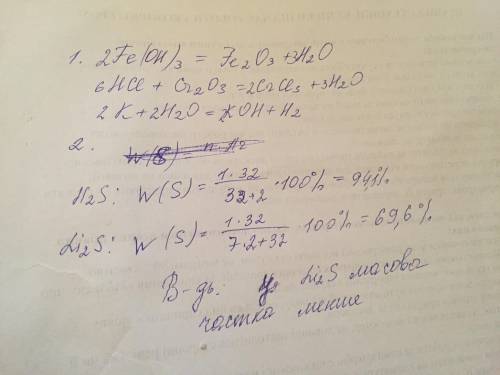 1. 2Fe(OH)₃ = Fe₂O₃ + 3H₂O
6HCl + Cr₂O₃ = 2CrCl₃ + 3H₂O
2K + 2H₂O = 2KOH + H₂
2.
H₂S: W(S) = 1·32 / 32+2 · 100% = 94,1%
Li₂S: W(S) = 1·32 / 7·2+32 · 100% = 69,6%
В-дь: у Li₂S масова
частка менше